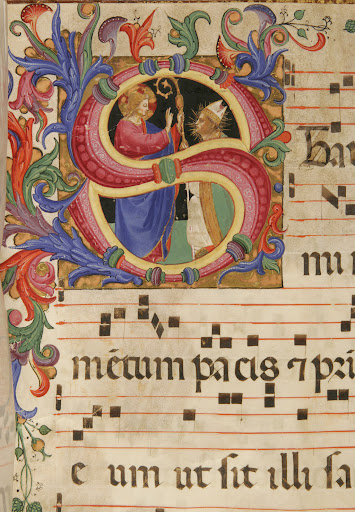 STa
mi n
mētum pacis ⁊ pri
e um ut sit illi sa